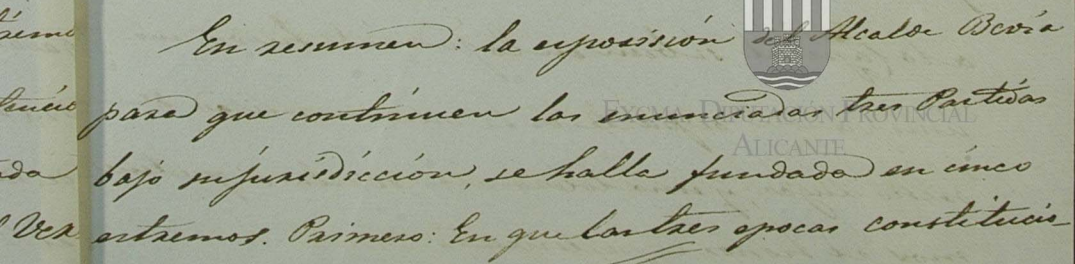 En resumen: la esposision del Alcalde Bevia
para que continuen las enunciadas tres Partidas
bajo su jurisdiccion, se halla fundada en cinco
estremos. Primero: En que las tres epocas constitucio-
EXCMA. DIPUTACIÓN PROVINCIAL
ALICANTE